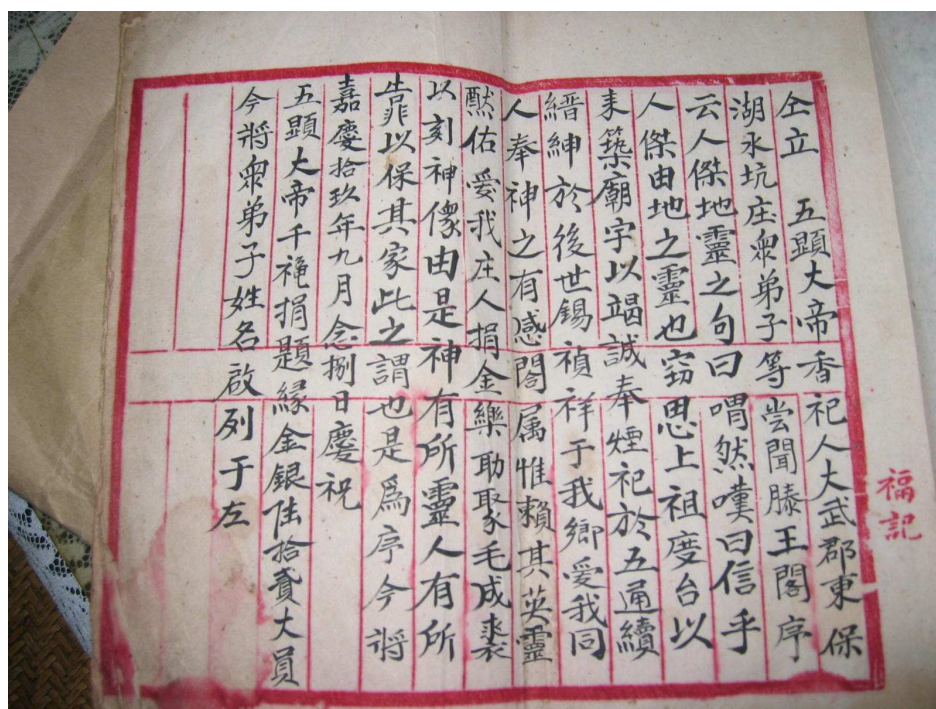 仝立　五顯大帝香祀人大武郡東保
湖水坑庄衆弟子等尝聞滕王閣序
云人傑地靈之句曰喟然嘆曰信乎
人傑由地之靈也窃思上祖度台以
来築廟宇以竭誠奉煙祀於五通續
縉紳於後世錫禎祥于我鄉愛我同
人奉神之有感閤属惟賴其英靈
默佑爰我庄人捐金樂助聚毛成裘
以刻神像由是神有所靈人有所
靠以保其家此之謂也是爲序今將
嘉慶拾玖年九月念捌日慶祝
五顯大帝千秋捐題緣金銀陆拾貳大員
今將衆弟子姓名啟列于左
福記